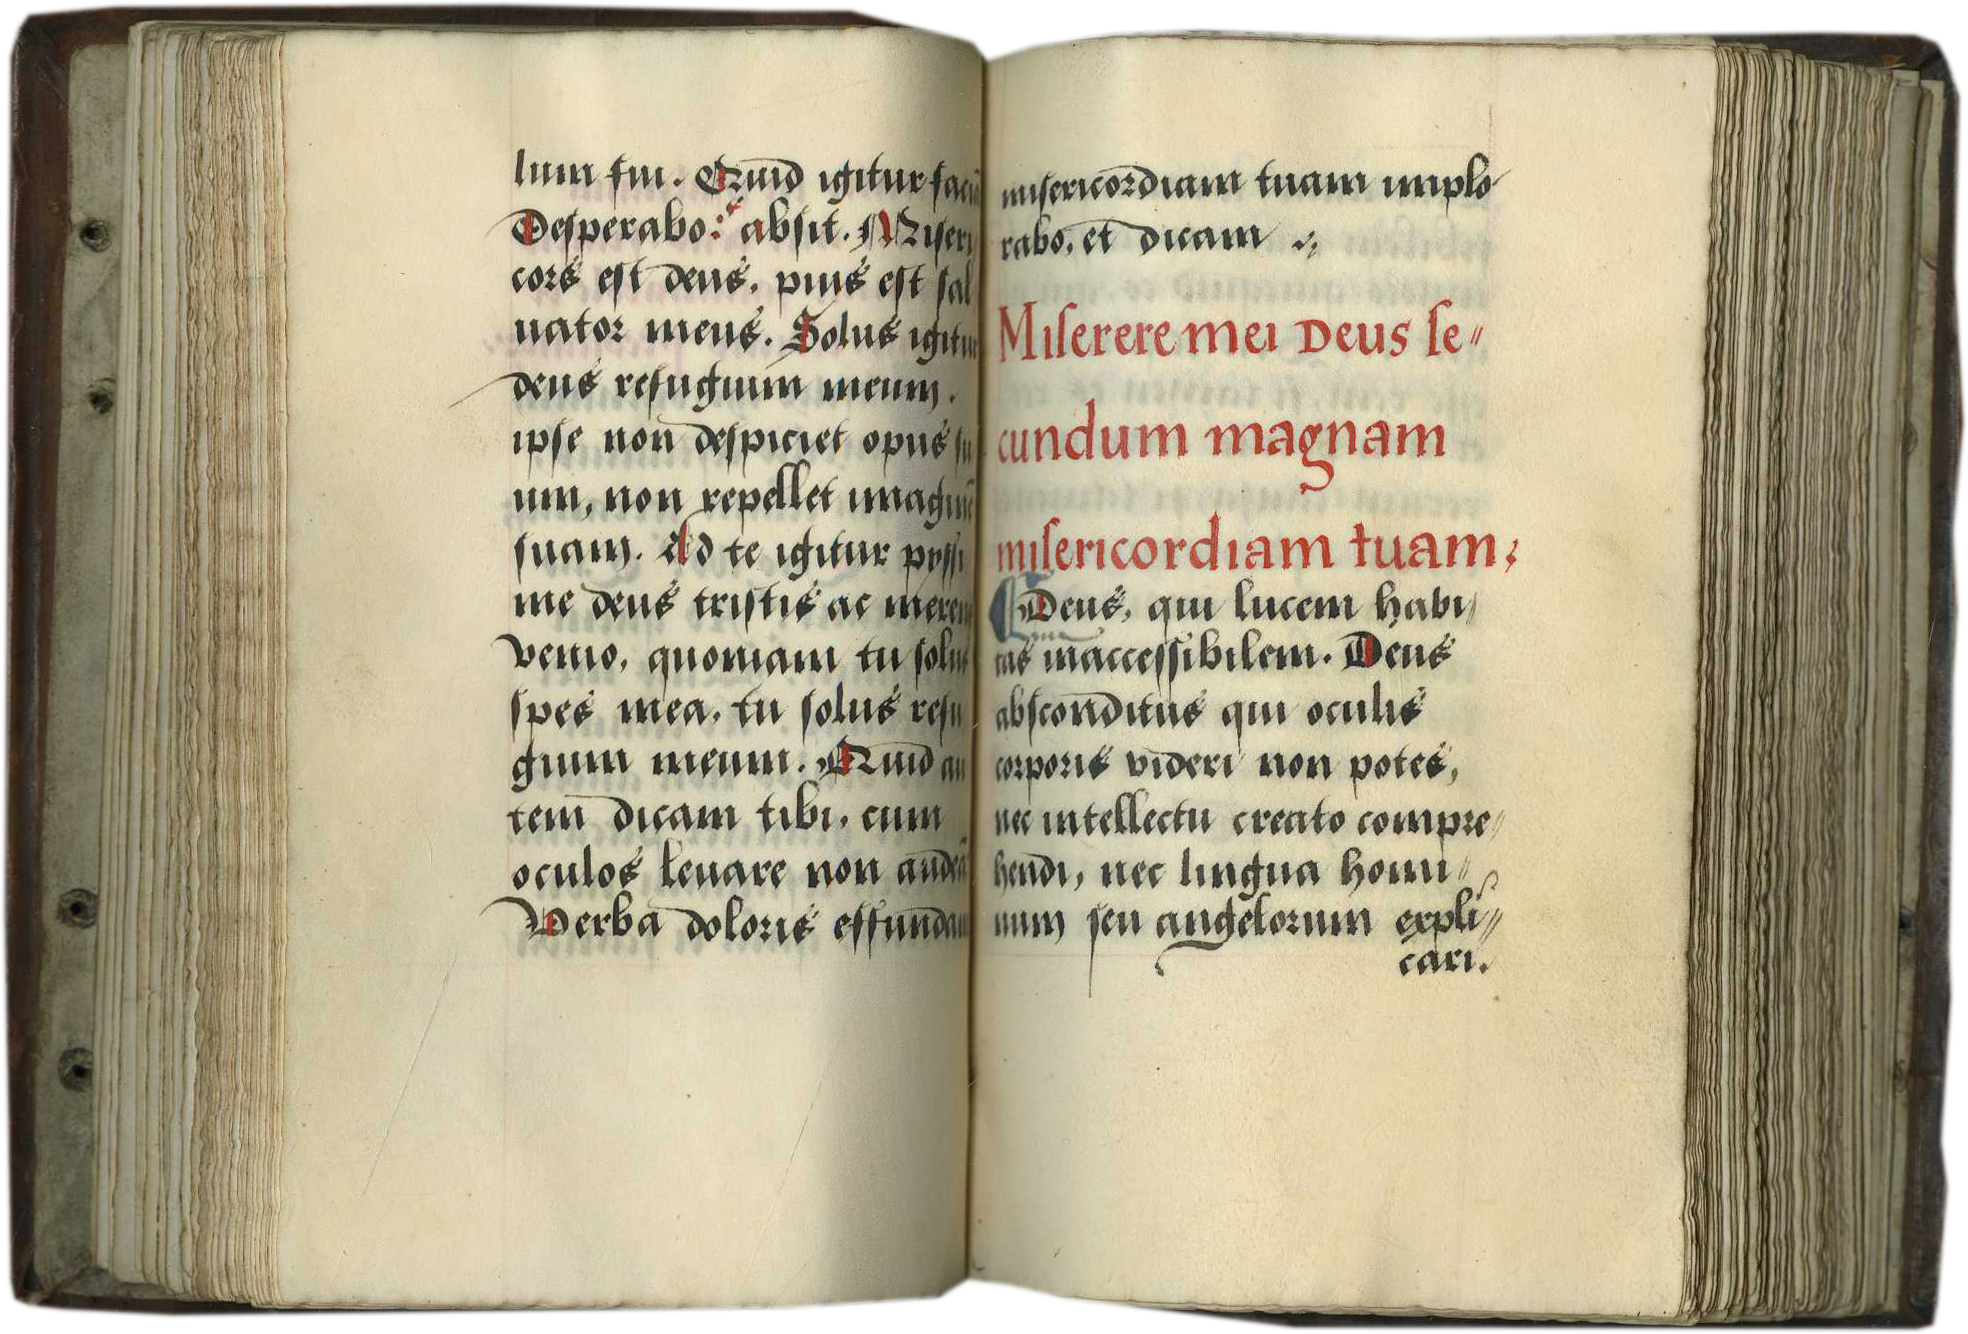 lum fui. Quid igitur faciā
Desperabo? absit. Miseri
cors est deus, pius est sal
uator meus. Solus igitur
deus refugium meum.
ipse non despiciet opus su
um, non repellet imaginē
suam. Ad te igitur pyssi
me deus tristis ac merens
venio, quoniam tu solus
spes mea, tu solus refu
gium meum. Quid au
tem dicam tibi, cum
oculos leuare non audeā
Verba doloris effundam
misericordiam tuam implo
rabo, et dicam
Miserere mei Deus se〃
cundum magnam
misericordiam tuam;
Deus, qui lucem habi/
tas inaccessibilem. Deus
absconditus qui oculis
corporis videri non potes,
nec intellectu creato compre〃
hendi, nec lingua homi〃
num seu angelorum expli〃
cari.